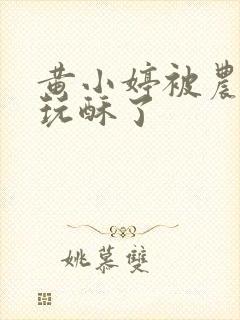 黄小婷被農
玩酥了
姚慕雙